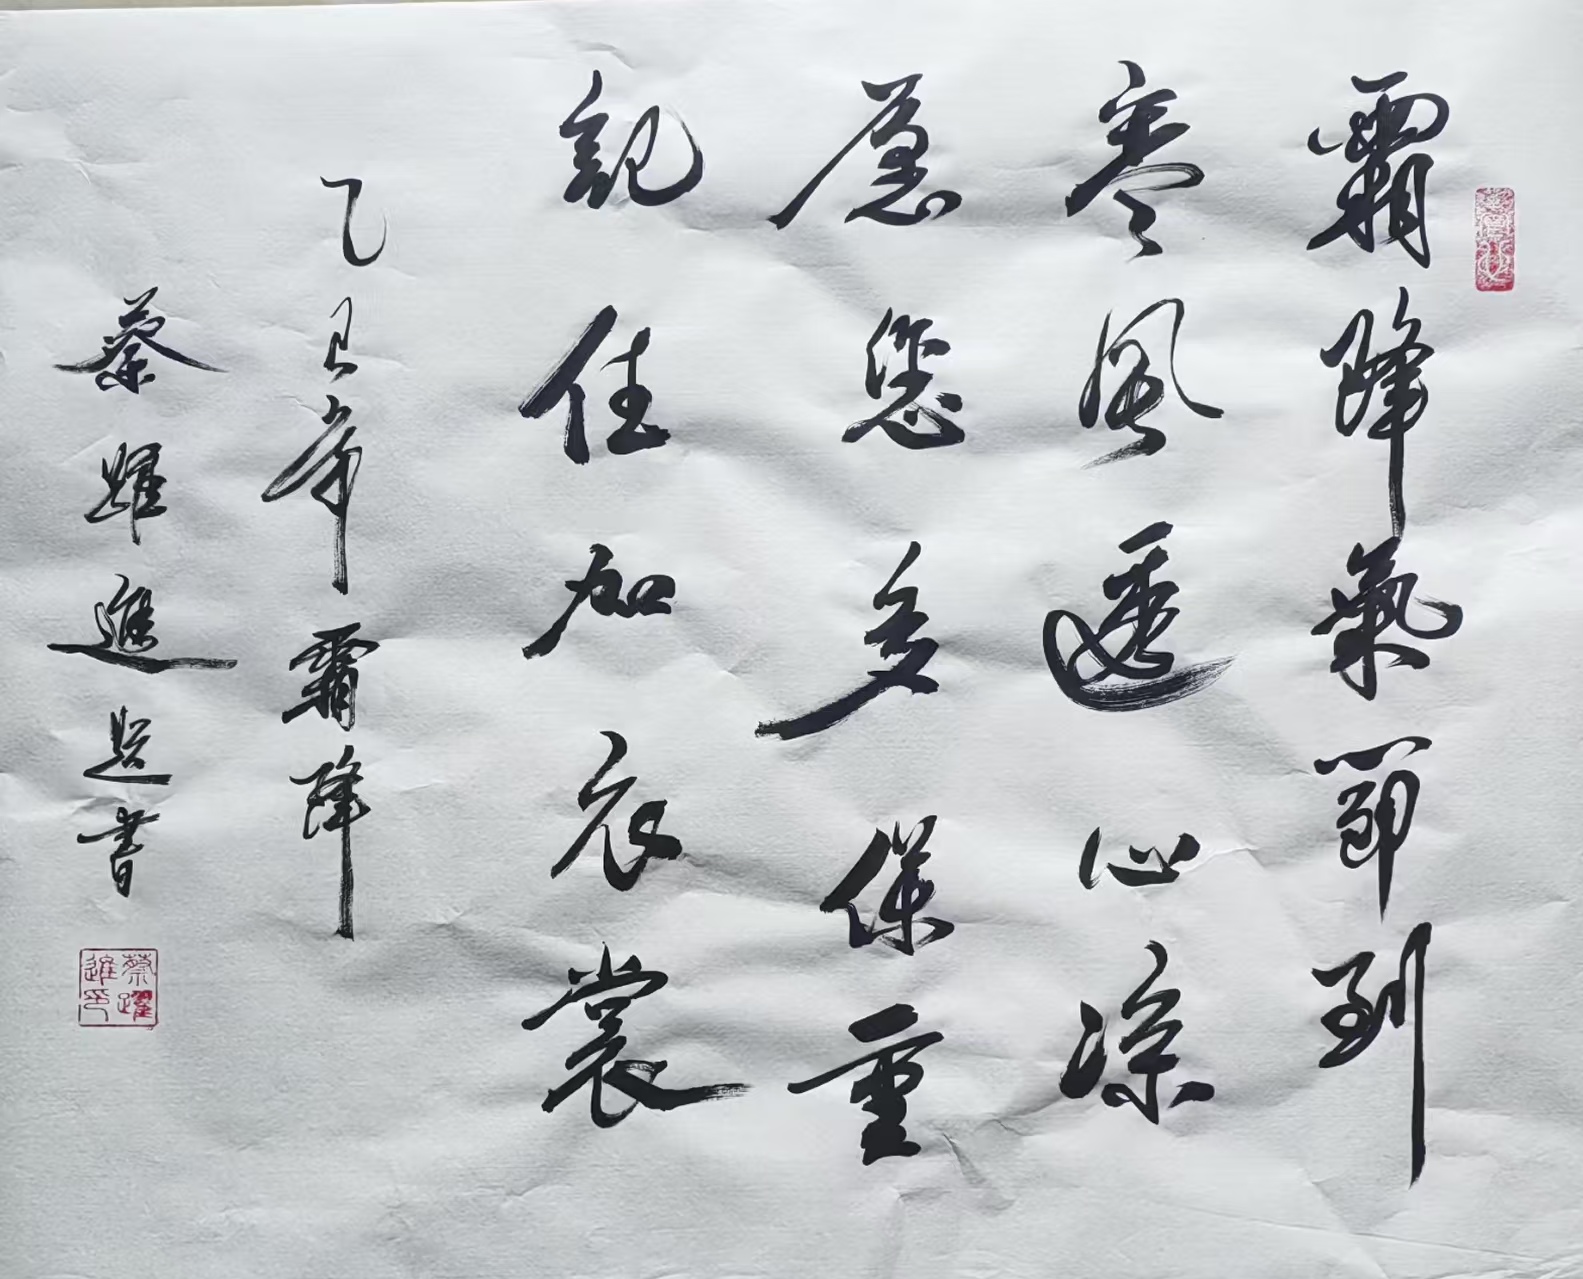 霜降氣節到
寒風透心涼
愿您多保重
記住加衣裳
乙巳年霜降
蔡躍進題書
蔡躍進印